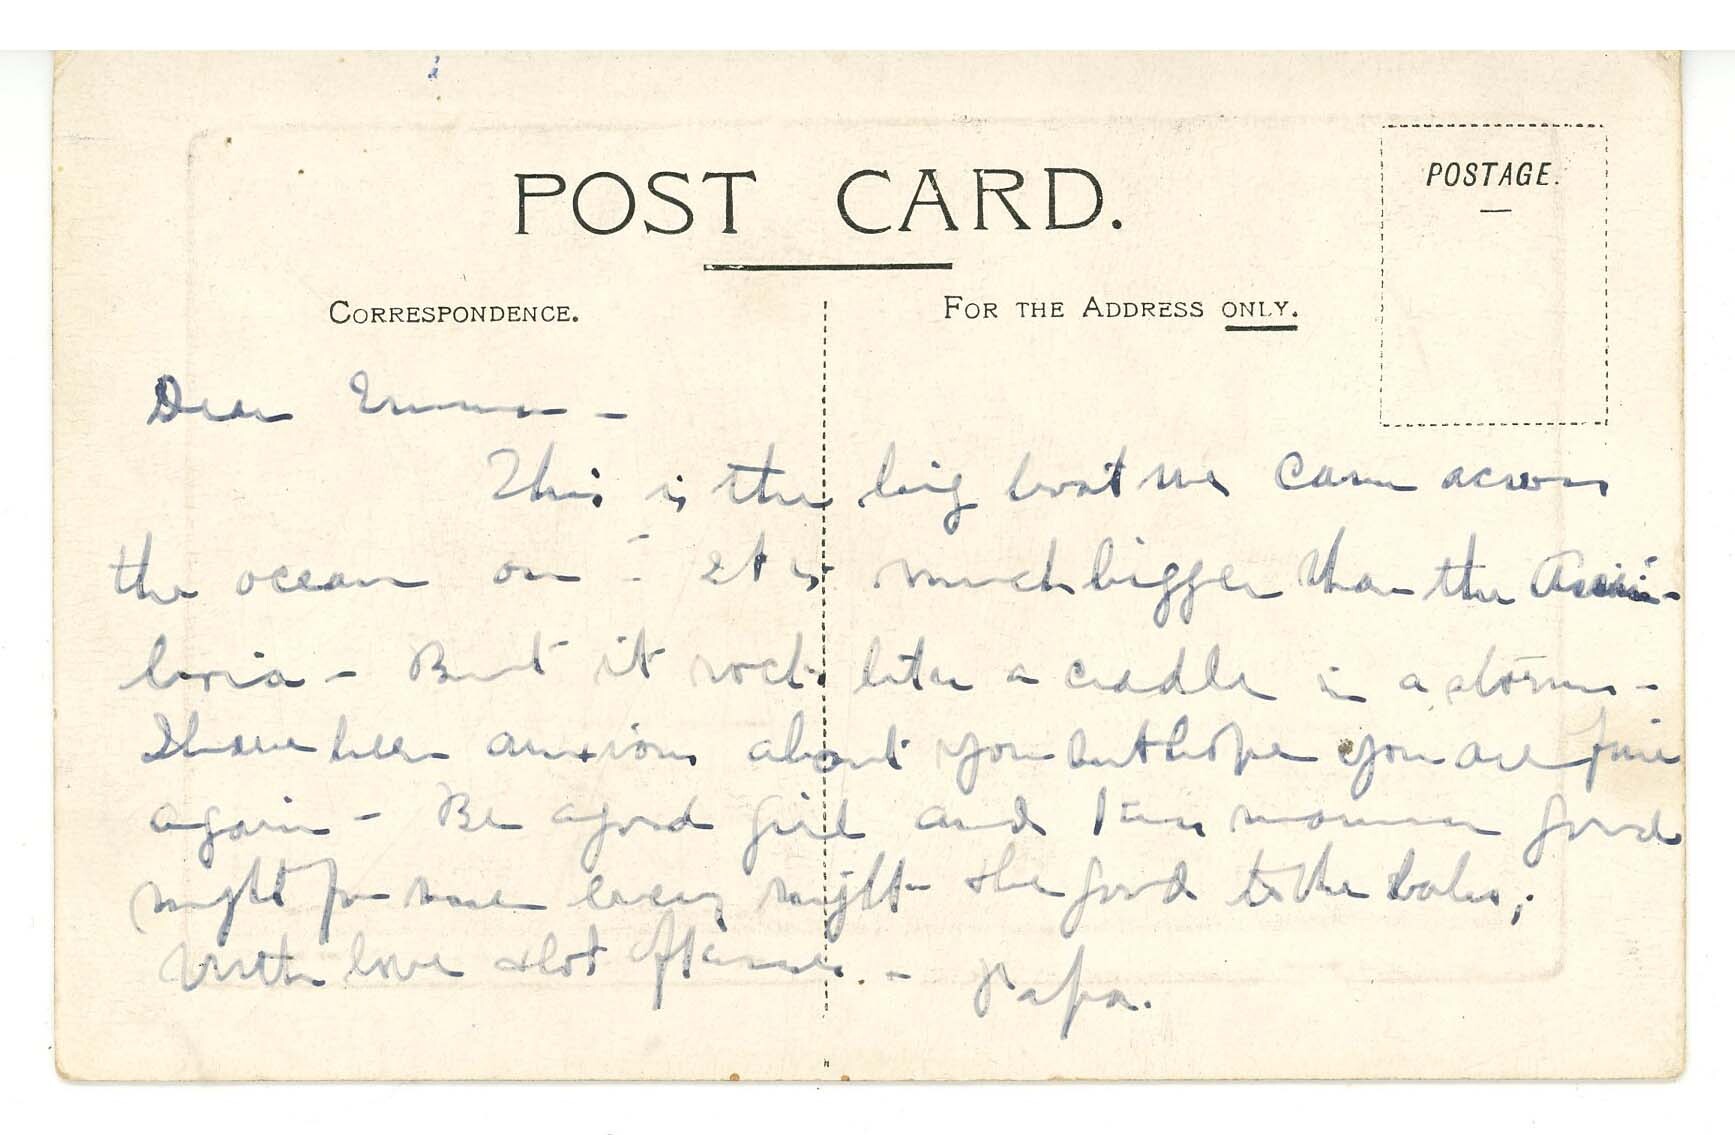 POST CARD.
POSTAGE.
CORRESPONDENCE.
FOR THE ADDRESS ONLY.
Dear Emma -
This is the big boat we came across
the ocean on - It is much bigger than the Assini-
boia - But it rocks like a cradle in a storm -
I have been anxious about you but hope you are fine
again - Be a good girl and kiss momma good
night for me every night - & be good to the baby,
With love & lot of kisses - Papa.